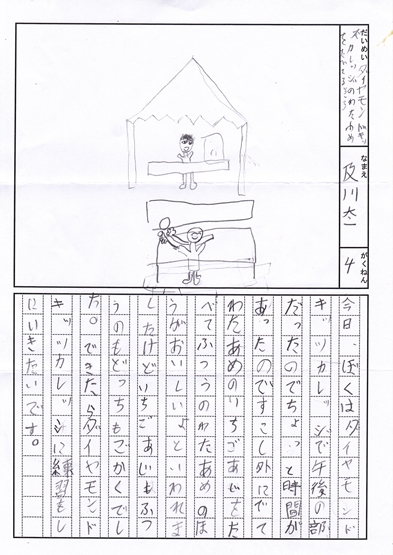 だいめい ダイヤモンドキッ
ズカレッジのわたあめ
なまえ 及川太一
がくねん 4
今日、ぼくはダイヤモンド
キッツカレッジで午後の部
だったのでちょっと時間が
あったのですこし外にでて
わたあめのいちごあじをた
べてふつうのわたあめのほ
うがおいしいよといわれま
したけどいちごあじもふつ
うのもどっちもごかくでし
た。できたらダイヤモンド
キッツカレッジに練習をし
にいきたいです。